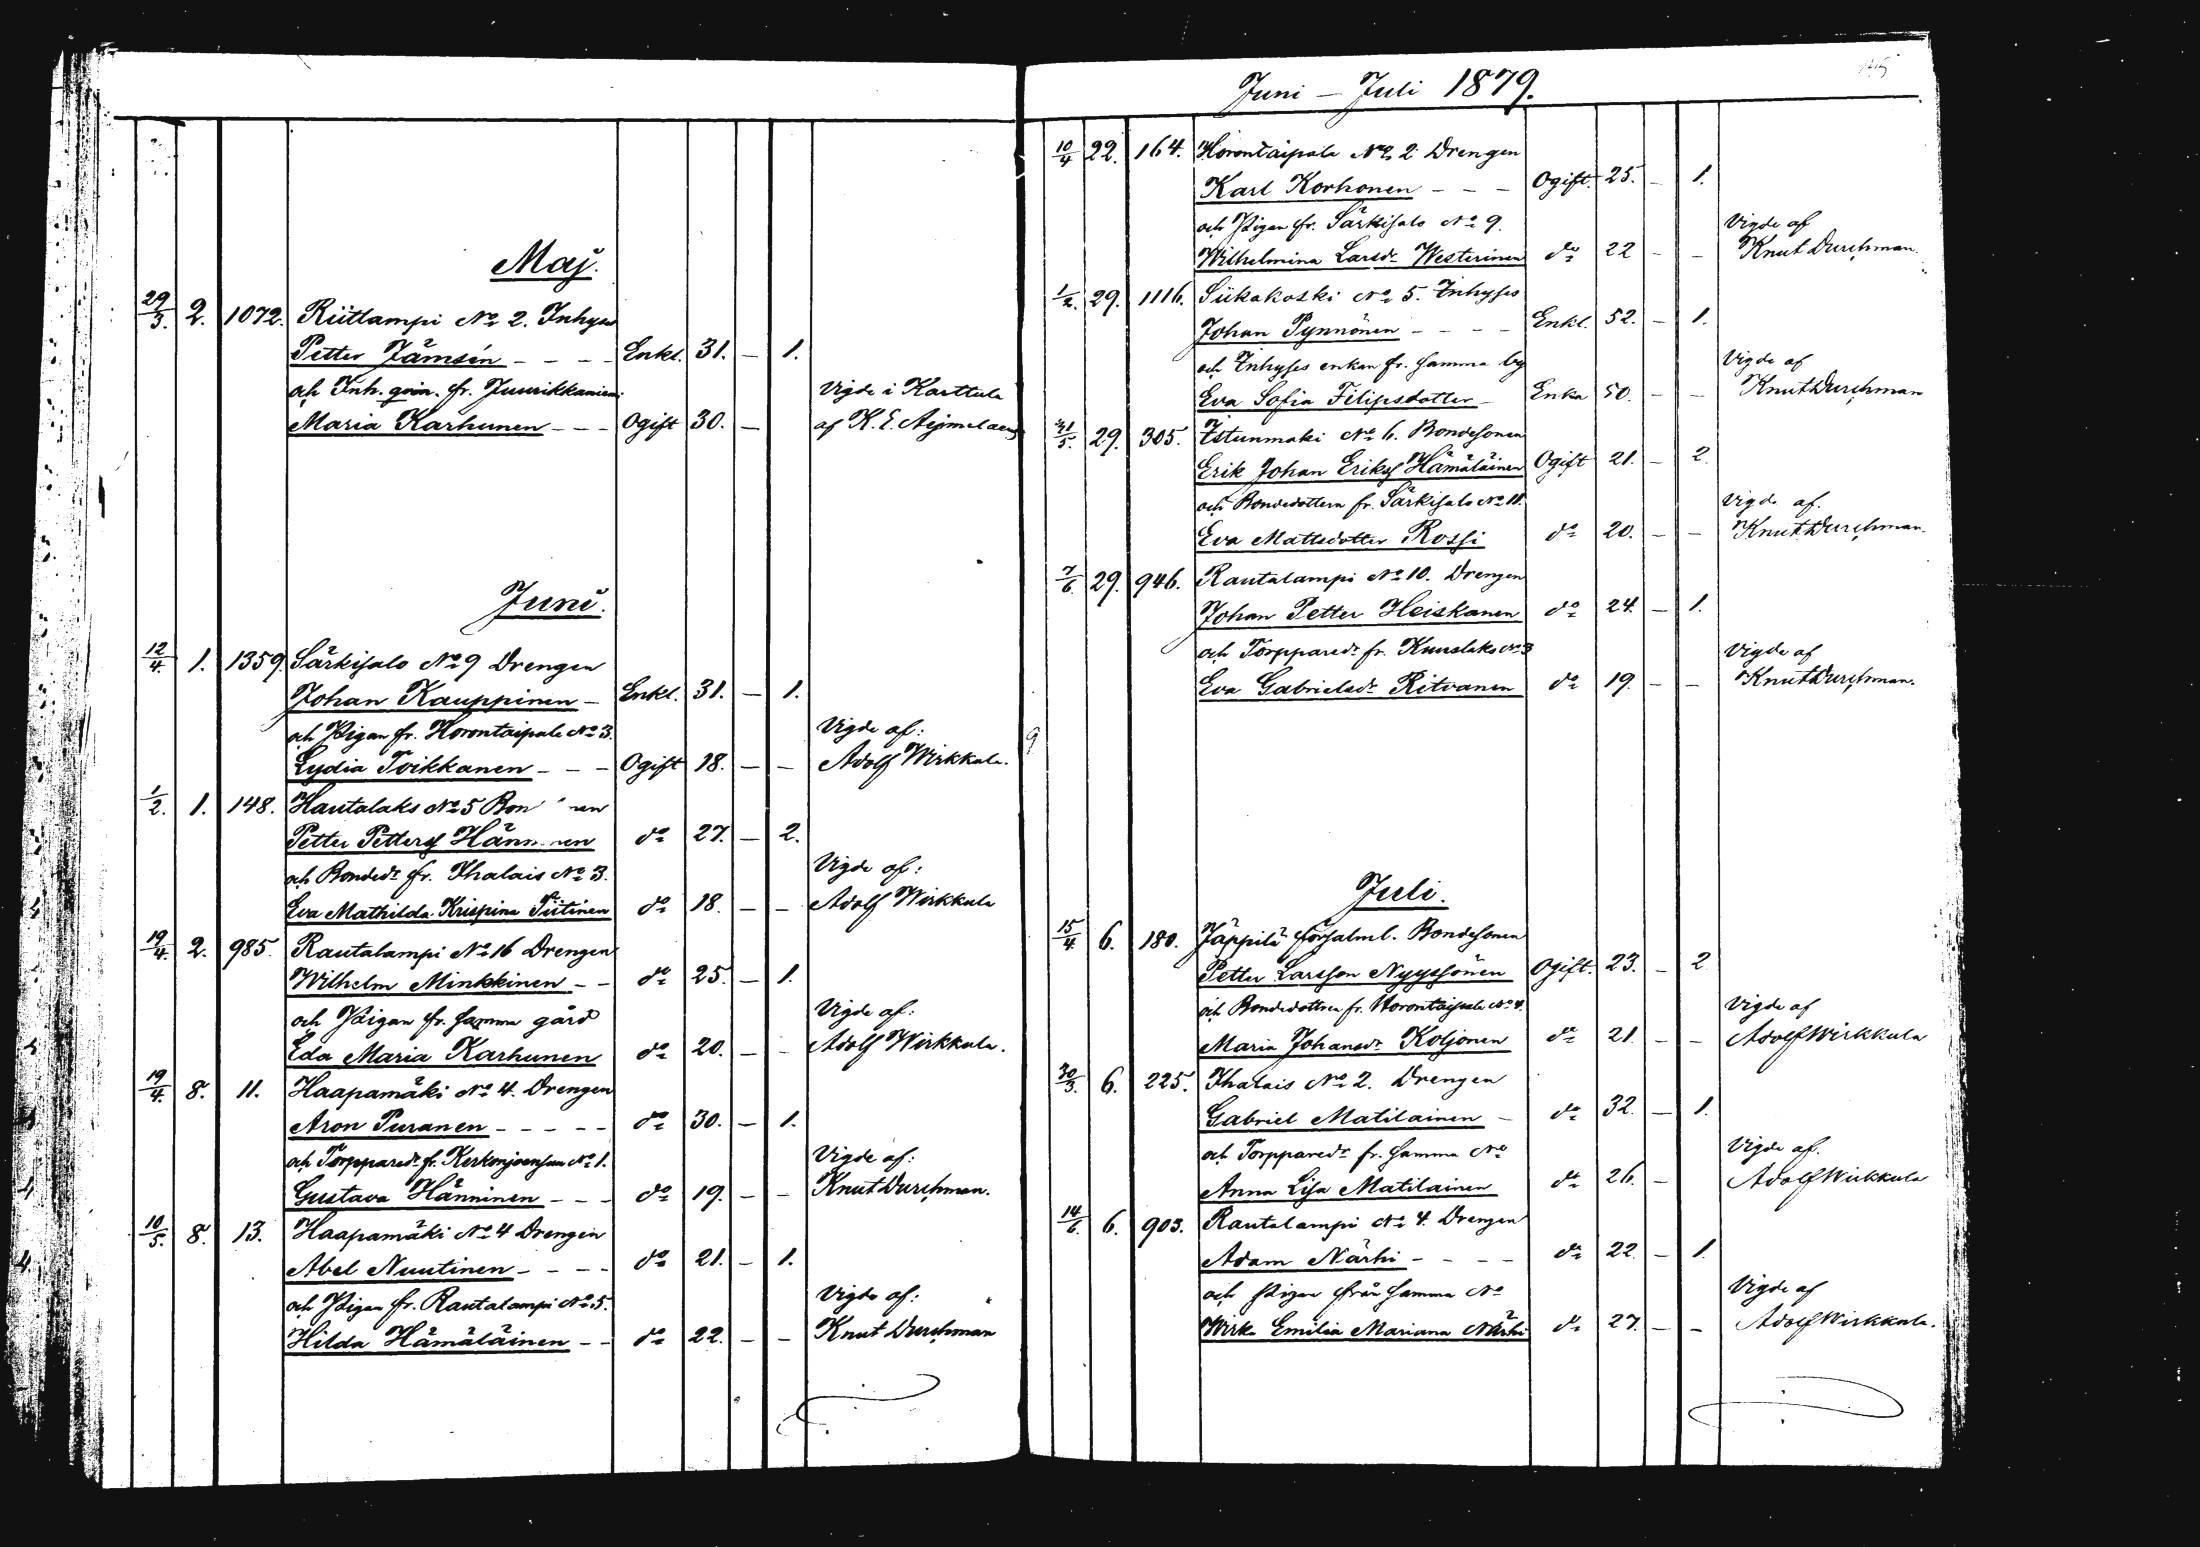 Maj.
29/3. 2. 1072. Riitlampi No 2. Inhyses
Petter Jämsén - - - - Enkl. 31. - 1.
och Inh. qvin. fr. Juurikkaniemi Vigde i Karttula
Maria Karhunen - - - Ogift 30. - af K. E. Aejmelaeus
Juni.
12/4. 1. 1359. Särkisalo No 9 Drengen
Johan Kauppinen - Enkl. 31. - 1.
och Pigan fr. Korontaipale No 3. Vigde af:
Lydia Toikkanen - - - Ogift 18. - - Adolf Wirkkula.
1/2. 1. 148. Hautalaks No 5
Petter Petterss do 27. - 2.
och Bonded. fr. Ihalais No 3. Vigde af:
Eva Mathilda Krispina Tiitinen do 18. - - Adolf Wirkkula
19/4. 2. 985. Rautalampi No 16 Drengen
Wilhelm Minkkinen - - do 25. - 1.
och Pigan fr. samma gård Vigde af:
Eda Maria Karhunen do 20. - - Adolf Wirkkula.
19/4. 8. 11. Haapamäki No 4. Drengen
Aron Puranen - - - - - do 30. - 1.
och Torppared. fr. Kerkonjoensuu No 1. Vigde af:
Gustava Hänninen - - - do 19. - - Knut Durchman.
10/5. 8. 13. Haapamäki No 4 Drengen
Abel Nuutinen - - - - do 21. - 1.
och Pigan fr. Rautalampi No 5. Vigde af:
Hilda Hämäläinen - - do 22. - - Knut Durchman
Juni - Juli 1879.
10/4 22. 164. Horontaipale No 2 Drengen
Karl Korhonen - - - Ogift. 25. - 1.
och Pigan fr. Särkisalo No 9. Vigde af
Wilhelmina Larsd. Westerinen do 22 - - Knut Durchman.
1/2. 29. 1116. Siikakoski No 5. Inhyses
Johan Pynnönen - - - - Enkl. 52. - 1.
och Inhyses enkan fr. samma by Vigde af
Eva Sofia Filipsdotter - Enka 50. - - Knut Durchman
31/5. 29. 305. Istunmäki No 6. Bondesonen
Erik Johan Erikss Hämäläinen Ogift 21. - 2.
och Bondedottern fr. Särkisalo No 11. Vigde af.
Eva Mattsdotter Rossi do 20. - - Knut Durchman.
7/6. 29. 946. Rautalampi No 10. Drengen
Johan Petter Heiskanen do 24. - 1.
och Torppared. fr. Kuuslaks No 3 Vigde af
Eva Gabrielsd. Ritvanen do 19. - - Knut Durchman.
Juli.
15/4. 6. 180. Jäppilä Bondesonen
Petter Larsson Nyyssönen Ogift. 23. - 2
och Bondedottren fr. Horontaipale No 4. Vigde af
Maria Johansd. Koljonen do 21. - - Adolf Wirkkula
30/3. 6. 225. Ihalais No 2. Drengen
Gabriel Matilainen - do 32. - 1.
och Torppared. fr. samma No Vigde af.
Anna Lisa Matilainen do 26. - Adolf Wirkkula
14/6. 6. 903. Rautalampi No 4. Drengen
Adam Närhi - - - - do 22. - 1.
och Pigan från samma No Vigde af
Emilia Mariana Närhi do 27. - - Adolf Wirkkula.